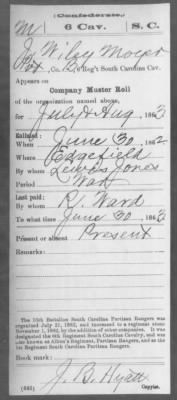 (Confederate.)
M 6 Cav. S. C.
Wiley
Pvt, Co. , 6 Reg't South Carolina Cav.
Appears on
Company Muster Roll
of the organization named above,
for July & Aug, 1863
Enlisted:
When June 30, 1862
Where Edgefield
By whom Lewis Jones
Period War
Last paid:
By whom R. Ward
To what time June 30, 1863
Present or absent Present
Remarks:
The 16th Battalion South Carolina Partisan Rangers was
organized July 21, 1862, and increased to a regiment about
November 1, 1862, by the addition of other companies. It was
designated the 6th Regiment South Carolina Cavalry, and was
also known as Aiken's Regiment, Partisan Rangers, and as the
1st Regiment South Carolina Partisan Rangers.
Book mark:
J. B. Hyatt
(642) Copyist.